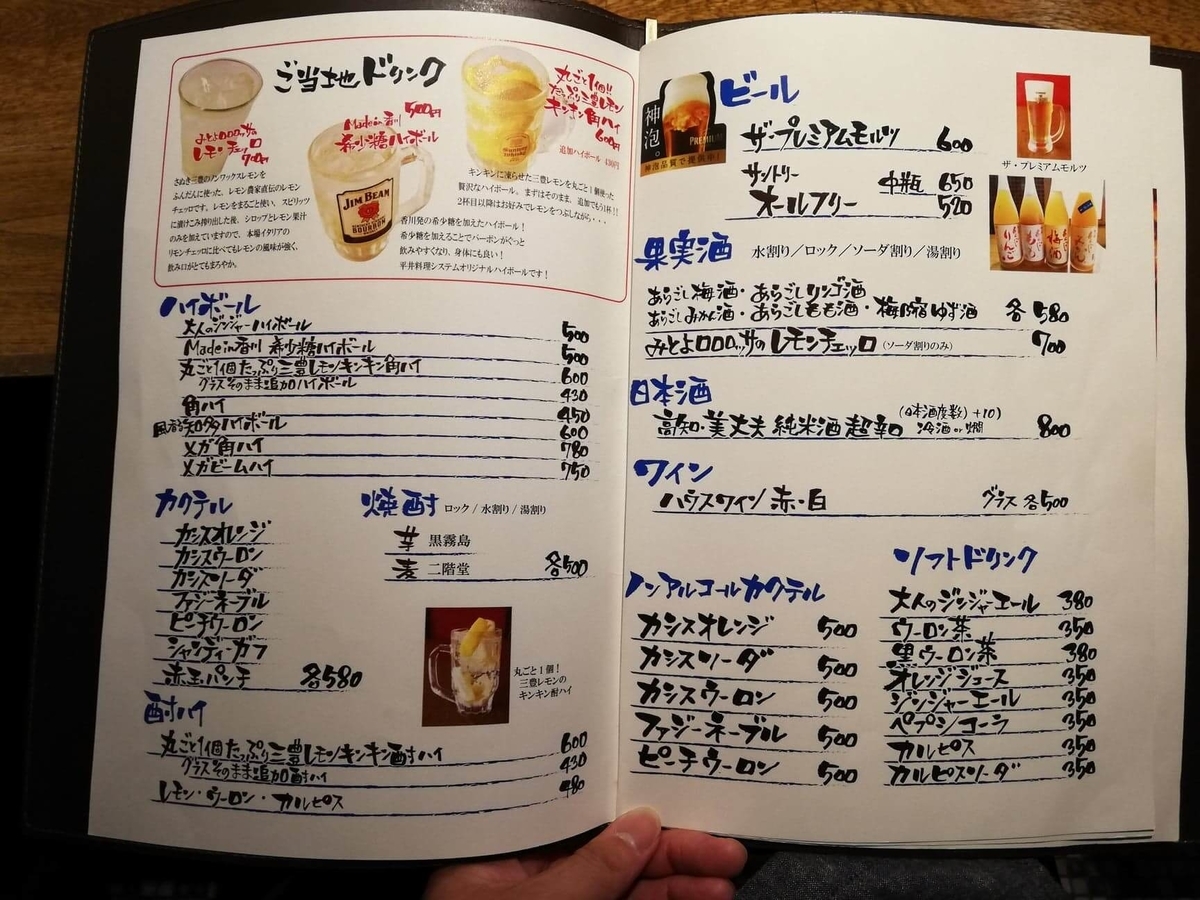 ご当地ドリンク
みとよロロロッサの
レモンチェッロ
700円
さぬき三豊のノンワックスレモンを
ふんだんに使った、レモン農家直伝のレモン
チェッロです。レモンをまるごと使い、スピリッツ
に漬けこみ搾り出した後、シロップとレモン果汁
のみを加えていますので、本場イタリアの
リモンチェッロに比べてもレモンの風味が強く、
飲み口がとてもまろやか。
500円
Made in 香川
希少糖ハイボール
JIM BEAM
BOURBON
香川発の希少糖を加えたハイボール!
希少糖を加えることでバーボンがぐっと
飲みやすくなり、身体にも良い!
平井料理システムオリジナルハイボールです!
丸ごと1個!!
たっぷり三豊レモン
キンキン角ハイ
600円
追加ハイボール 430円
キンキンに凍らせた三豊レモンを丸ごと1個使った
贅沢なハイボール。まずはそのまま、追加でもう1杯!!
2杯目以降はお好みでレモンをつぶしながら・・・
ハイボール
大人のジンジャーハイボール 500
Made in 香川 希少糖ハイボール 500
丸ごと1個たっぷり三豊レモンキンキン角ハイ 600
グラスそのまま追加ハイボール 430
角ハイ 450
風香る知多ハイボール 600
メガ角ハイ 780
メガビームハイ 750
カクテル
カシスオレンジ
カシスウーロン
カシスソーダ
ファジーネーブル
ピーチウーロン
シャンディーガフ
赤玉パンチ 各580
焼酎 ロック / 水割り / 湯割り
芋 黒霧島
麦 二階堂 各500
丸ごと1個!
三豊レモンの
キンキン酎ハイ
酎ハイ
丸ごと1個たっぷり三豊レモンキンキン酎ハイ 600
グラスそのまま追加酎ハイ 430
レモン・ウーロン・カルピス 480
神泡。
PREMIUM
神泡品質で提供中!
ビール
ザ・プレミアムモルツ 600
サントリー 中瓶 650
オールフリー 520
ザ・プレミアムモルツ
果実酒 水割り/ロック/ソーダ割り/湯割り
あらごし梅酒・あらごしりんご酒
あらごしみかん酒・あらごしもも酒・梅乃宿ゆず酒 各580
みとよロロロッサのレモンチェッロ (ソーダ割りのみ) 700
日本酒
高知・美丈夫 純米酒 超辛口 (日本酒度数)+10) 冷酒 or 燗 800
ワイン
ハウスワイン 赤・白 グラス 各500
ノンアルコールカクテル
カシスオレンジ 500
カシスソーダ 500
カシスウーロン 500
ファジーネーブル 500
ピーチウーロン 500
ソフトドリンク
大人のジンジャーエール 380
ウーロン茶 350
黒ウーロン茶 380
オレンジジュース 350
ジンジャーエール 350
ペプシコーラ 350
カルピス 350
カルピスソーダ 350